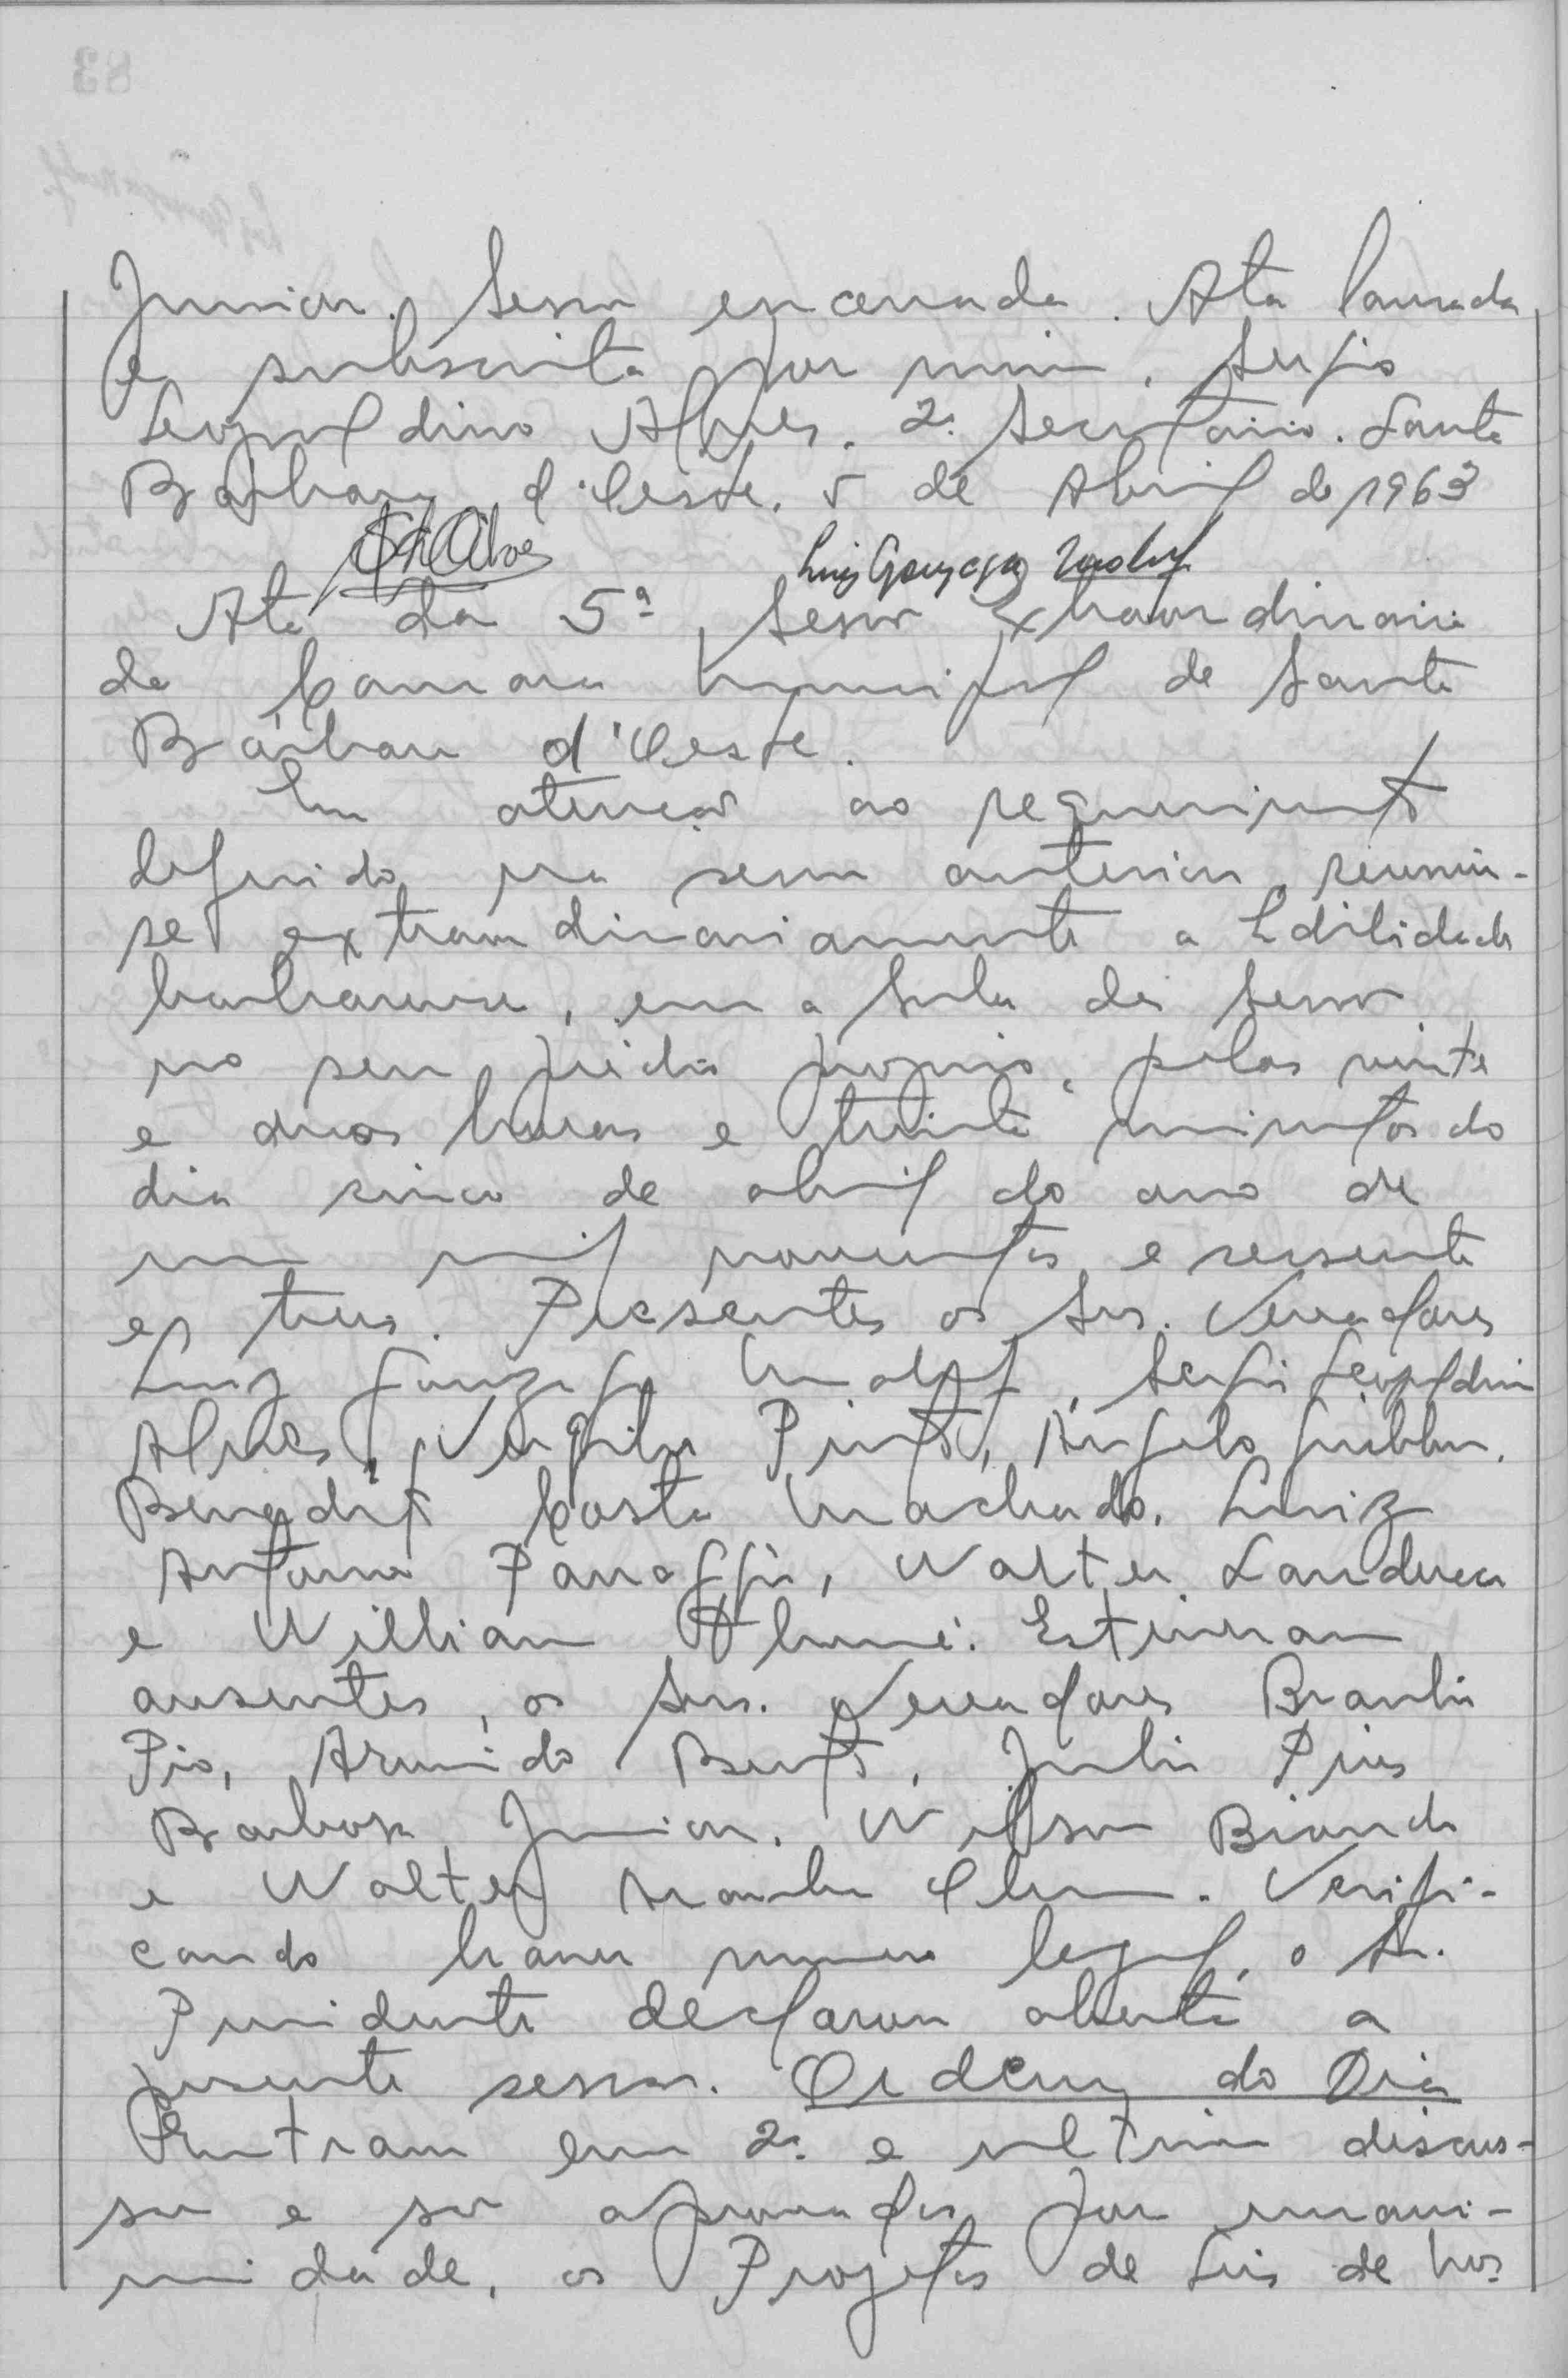 Junior. Sessão encerrada. Ata lavrada
e subscrita por mim, Sergio
Leopoldino Alves. 2º Secretario. Santa
Barbara d'Oeste, 5 de Abril de 1963
SLAlves Luiz Gonzaga
Ata da 5ª Sessão Extraordinaria
da Camara Municipal de Santa
Bárbara d'Oeste.
Em atenção ao requerimento
deferido na sessão anterior, reuniu-
se extraordinariamente a Edilidade
barbarense, em a Sala de Sessão
no seu prédio proprio, pelas vinte
e duas horas e trinta minutos do
dia cinco de abril do ano de
um mil novecentos e sessenta
e tres. Presentes os Srs. Vereadores
Luiz Gonzaga, Sergio Leopoldino
Alves, Virgilio Pinto, Angelo Giubbina,
Benedito Costa Machado, Luiz
Antonio Panaggio, Walter Landucci
e Willian Ahumé. Estiveram
ausentes, os Srs. Vereadores Braulio
Pio, Armindo Bento, Julio Pires
Barbosa Junior, Wilson Bianch
e Walter. Verifi-
cando haver numero legal, o Sr.
Presidente declarou aberta a
presente sessão. Ordem do Dia
Entram em 2ª e ultima discus-
são e são aprovados por unani-
midade, os Projetos de Leis de Nos.